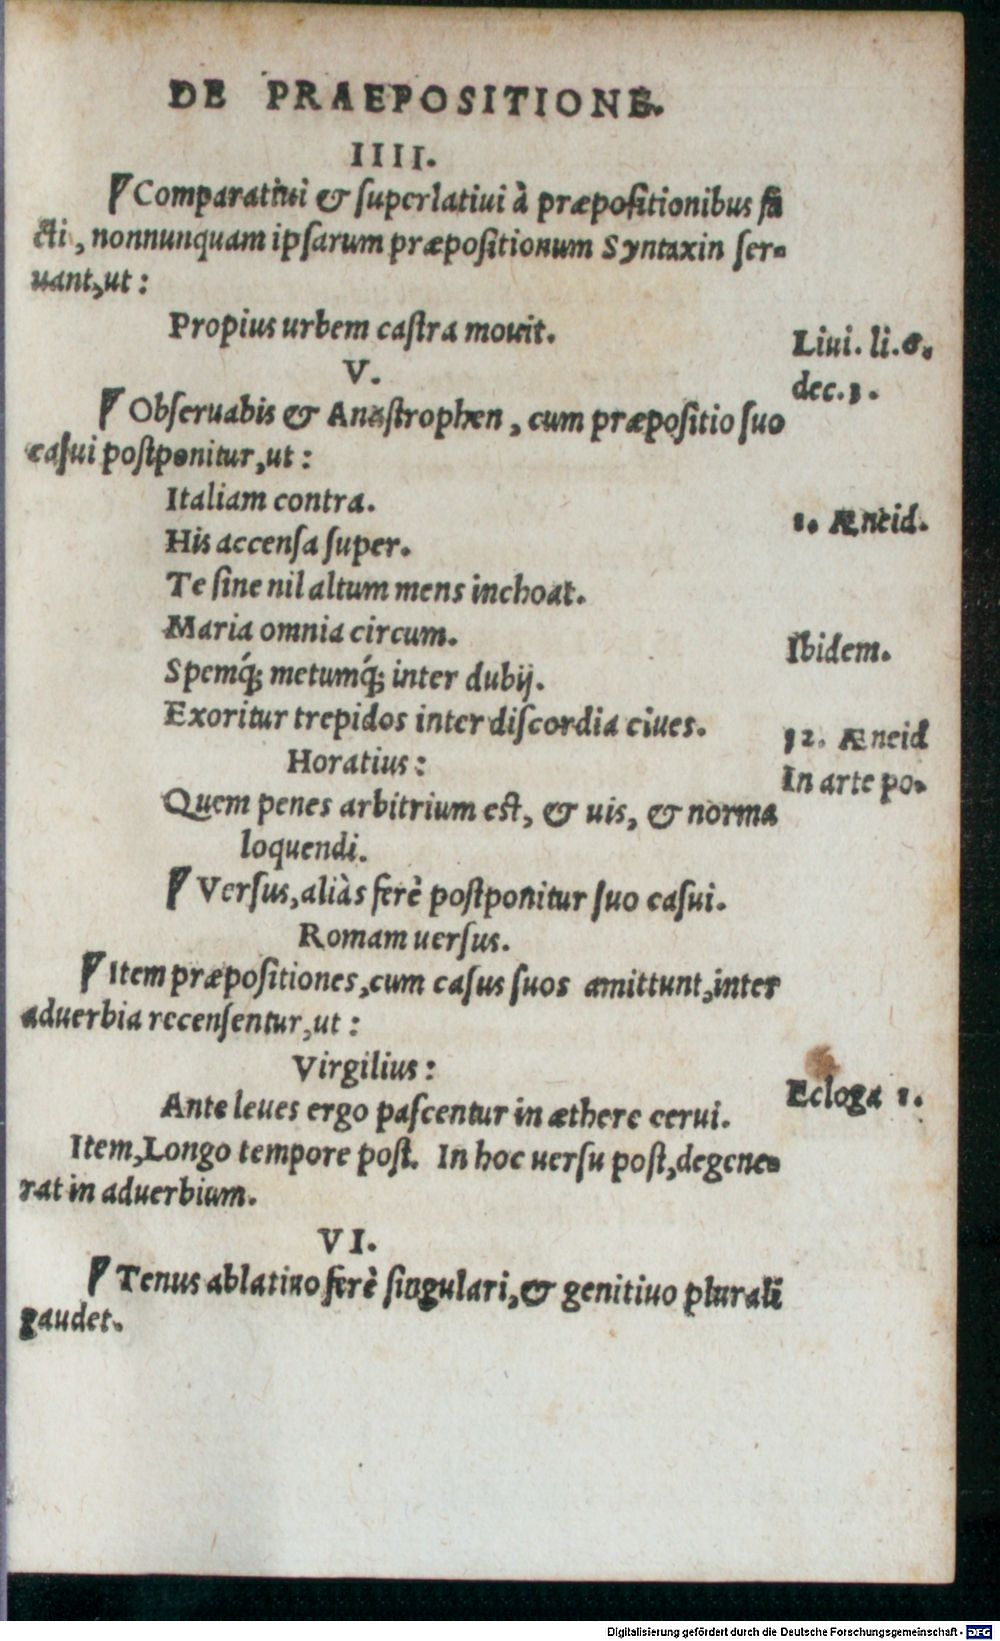 DE PRAEPOSITIONE.
IIII.
Comparatiui & ſuperlatiui à præpoſitionibus fa
cti, nonnunquam ipſarum præpoſitionum Syntaxin ſer-
uant, ut:
Propius urbem caſtra mouit.
Liui. li. 8.
dec. 1.
V.
Obſeruabis & Anaſtrophen, cum præpoſitio ſuo
caſui poſtponitur, ut:
Italiam contra.
1. Æneid.
His accenſa ſuper.
Te ſine nil altum mens inchoat.
Maria omnia circum.
Ibidem.
Spemq́; metumq́; inter dubij.
Exoritur trepidos inter diſcordia ciues.
12. Æneid
Horatius:
In arte po-
Quem penes arbitrium eſt, & uis, & norma
loquendi.
Verſus, aliàs ferè poſtponitur ſuo caſui.
Romam uerſus.
Item præpoſitiones, cum caſus ſuos amittunt, inter
aduerbia recenſentur, ut:
Virgilius:
Ante leues ergo paſcentur in æthere cerui.
Ecloga 1.
Item, Longo tempore poſt. In hoc uerſu poſt, degene-
rat in aduerbium.
VI.
Tenus ablatiuo ferè ſingulari, & genitiuo plurali
gaudet.
Digitalisierung gefördert durch die Deutsche Forschungsgemeinschaft - DFG